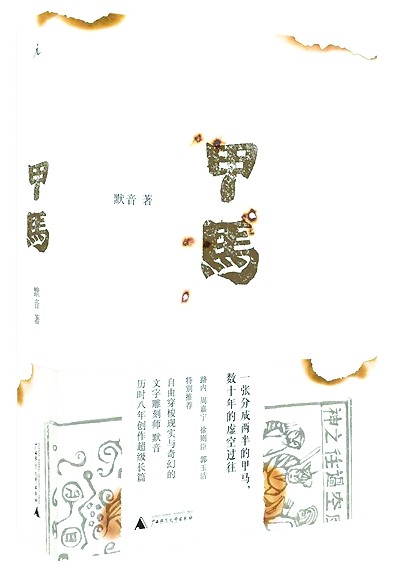 甲馬
默音 著
甲馬
默音 著
一张分成两半的甲马，
数十年的虚空过往
路内 周嘉宁 徐则臣 郭玉洁
特别推荐
自由穿梭现实与奇幻的
文字雕刻师 默音
历时八年创作超级长篇
神之往過空
广西师范大学出版社